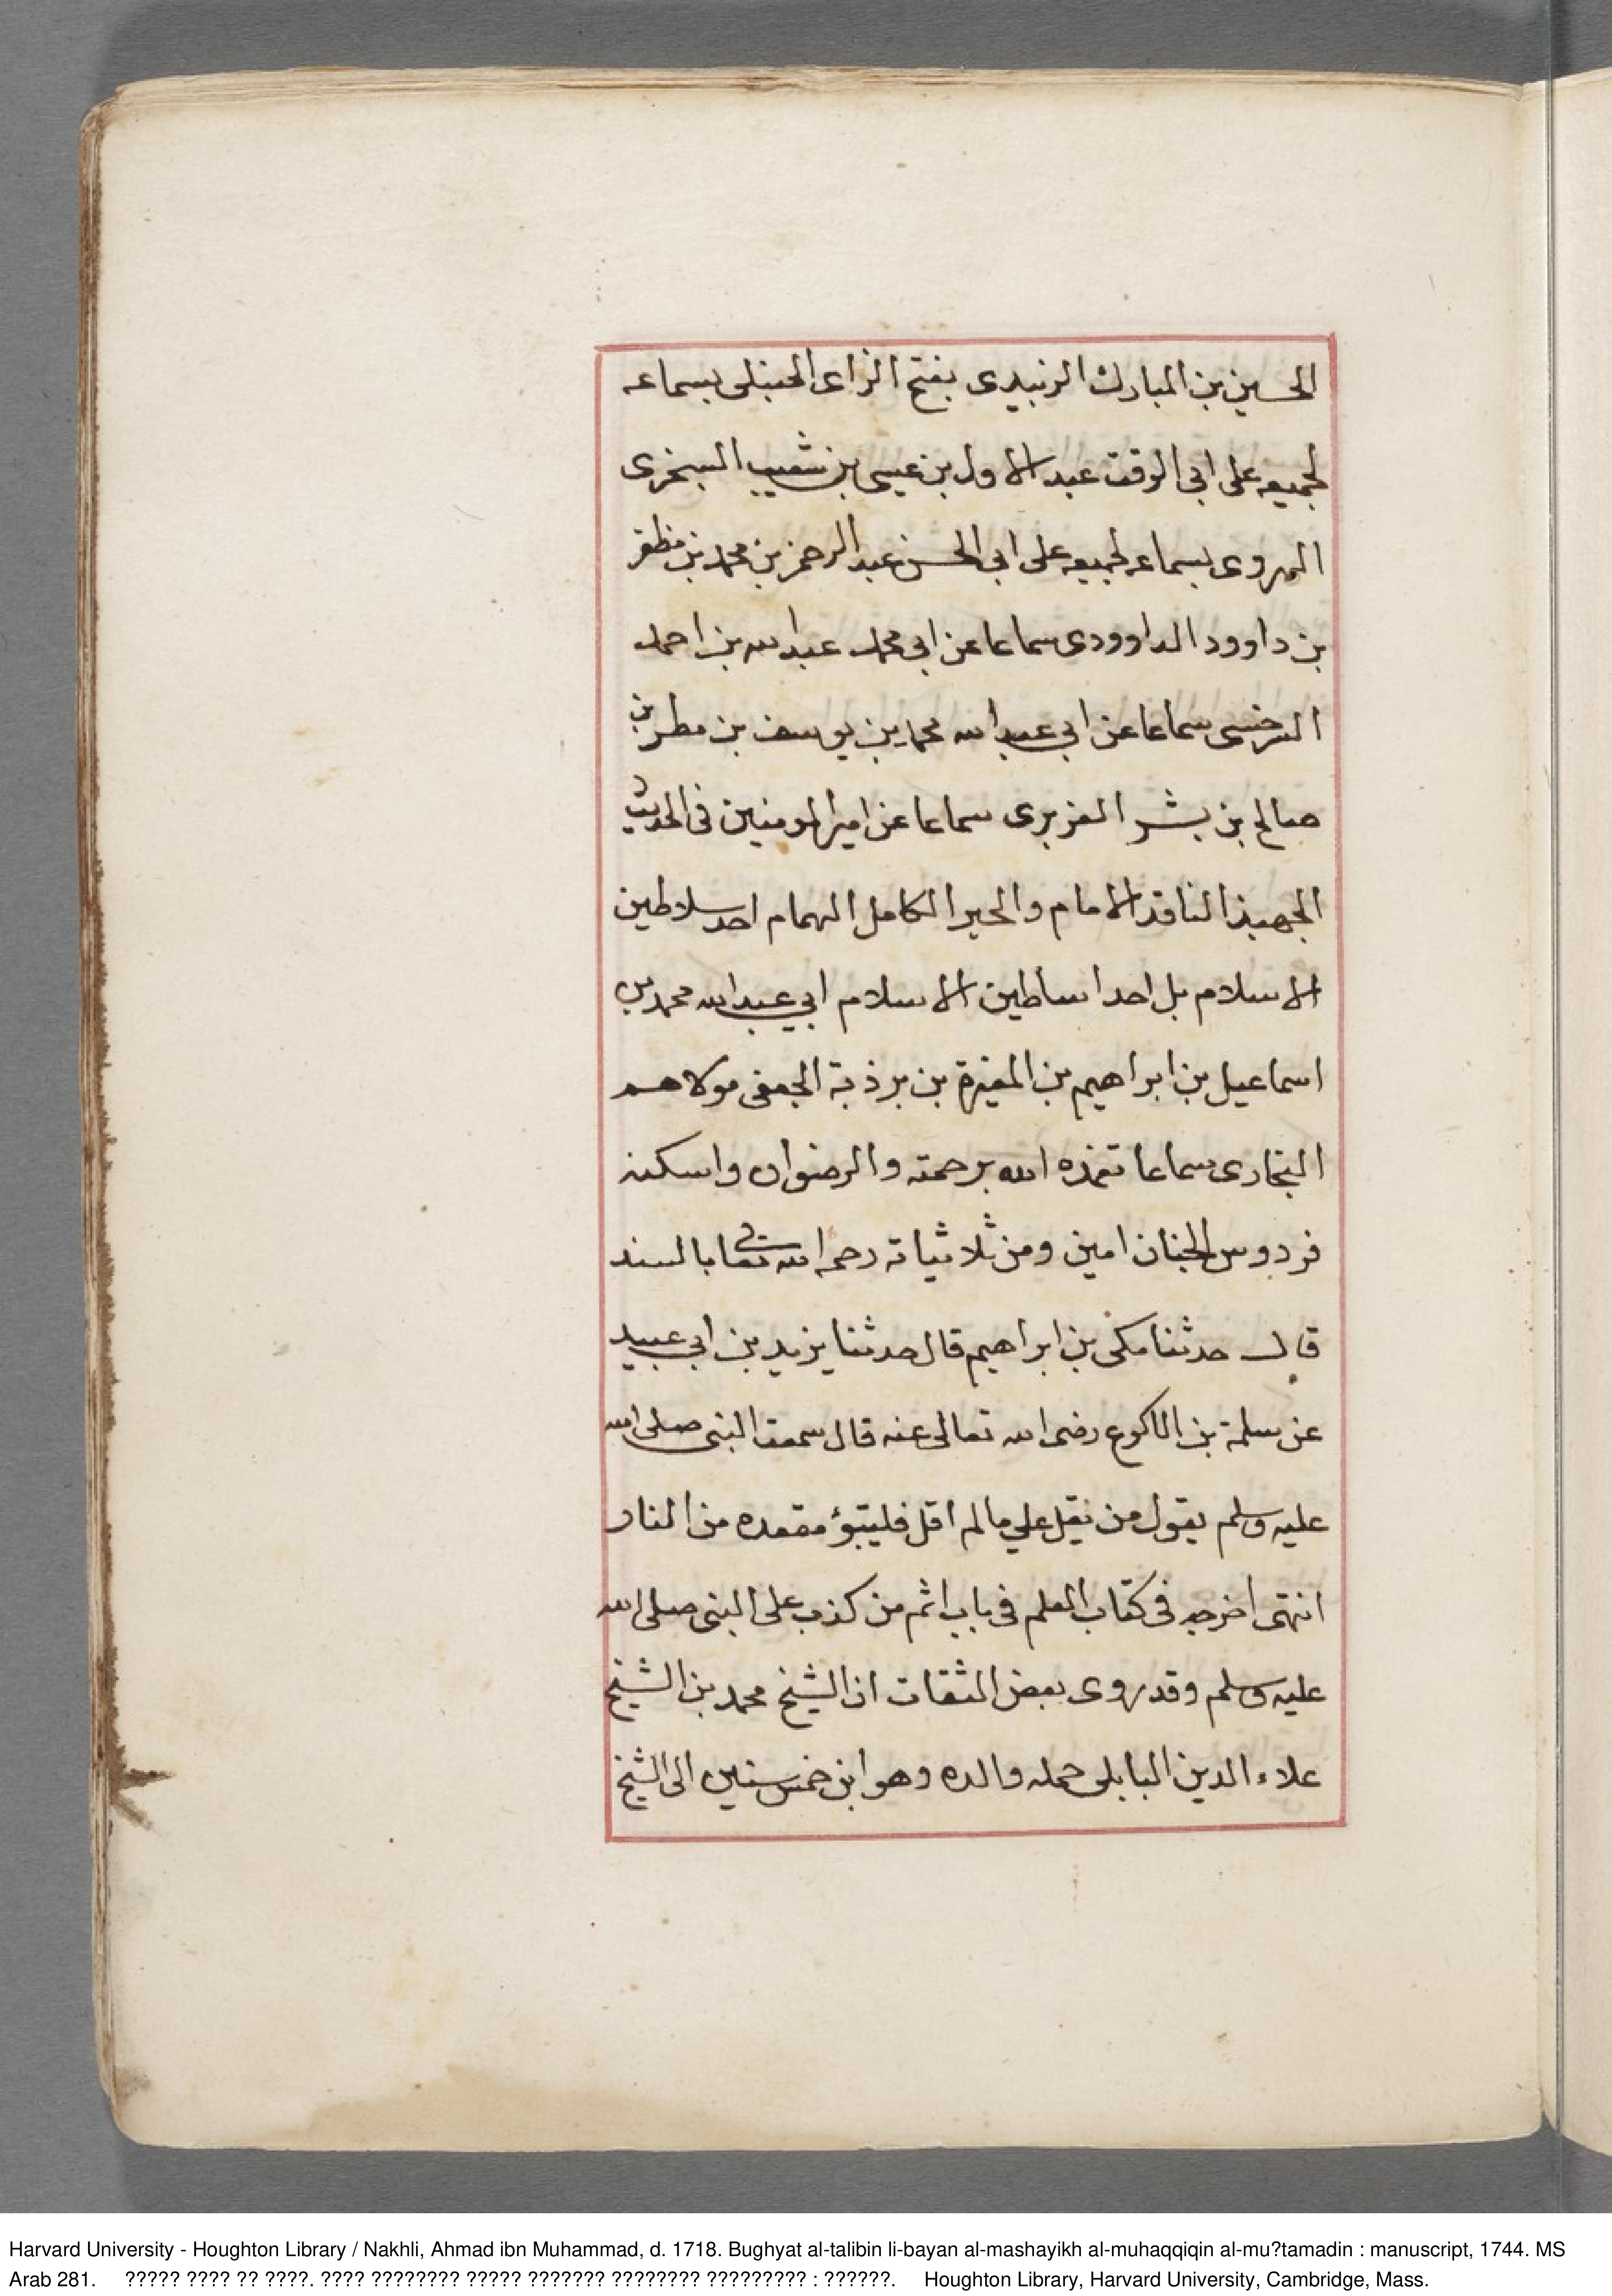 الحسين بن المبارك الزبيدى بفتح الزاى الحنبلى بسماعه
لجميعه على ابى الوقت عبد الاول بن عيسى بن شعيب السنجزى
الهروى بسماعه لجميعه على ابى الحسن عبد الرحمن بن محمد بن مظفر
بن داوود الداوودى سماعا عن ابى محمد عبد الله بن احمد
السرخسى سماعا عن ابي عبد الله محمد بن يوسف بن مطر بن
صالح بن بشر الفربرى سماعا عن امير المومنين فى الحديث
الجهبذ الناقد الامام والحبر الكامل الهمام احد سلاطين
الاسلام بل احد اساطين الاسلام ابي عبد الله محمد بن
اسماعيل بن ابراهيم بن المغيرة بن برذبة الجعفى مولاهم
البخارى سماعا تغمده الله برحمته والرضوان واسكنه
فردوس الجنان امين ومن ثلاثياته رحمه الله تعالى بالسند
قال حدثنا مكى بن ابراهيم قال حدثنا يزيد بن ابي عبيد
عن سلمة بن الاكوع رضى الله تعالى عنه قال سمعت النبى صلى الله
عليه وسلم يقول من يقل علي مالم اقل فليتبؤ مقعده من النار
انتهى اخرجه فى كتاب العلم فى باب اثم من كذب على النبى صلى الله
عليه وسلم وقد روى بعض الثقات ان الشيخ محمد بن الشيخ
علاء الدين البابلى حمله والده وهو ابن خمس سنين الى الشيخ
Harvard University - Houghton Library / Nakhli, Ahmad ibn Muhammad, d. 1718. Bughyat al-talibin li-bayan al-mashayikh al-muhaqqiqin al-mu?tamadin : manuscript, 1744. MS
Arab 281. ????? ???? ?? ????. ???? ???????? ????? ??????? ???????? ????????? : ??????. Houghton Library, Harvard University, Cambridge, Mass.